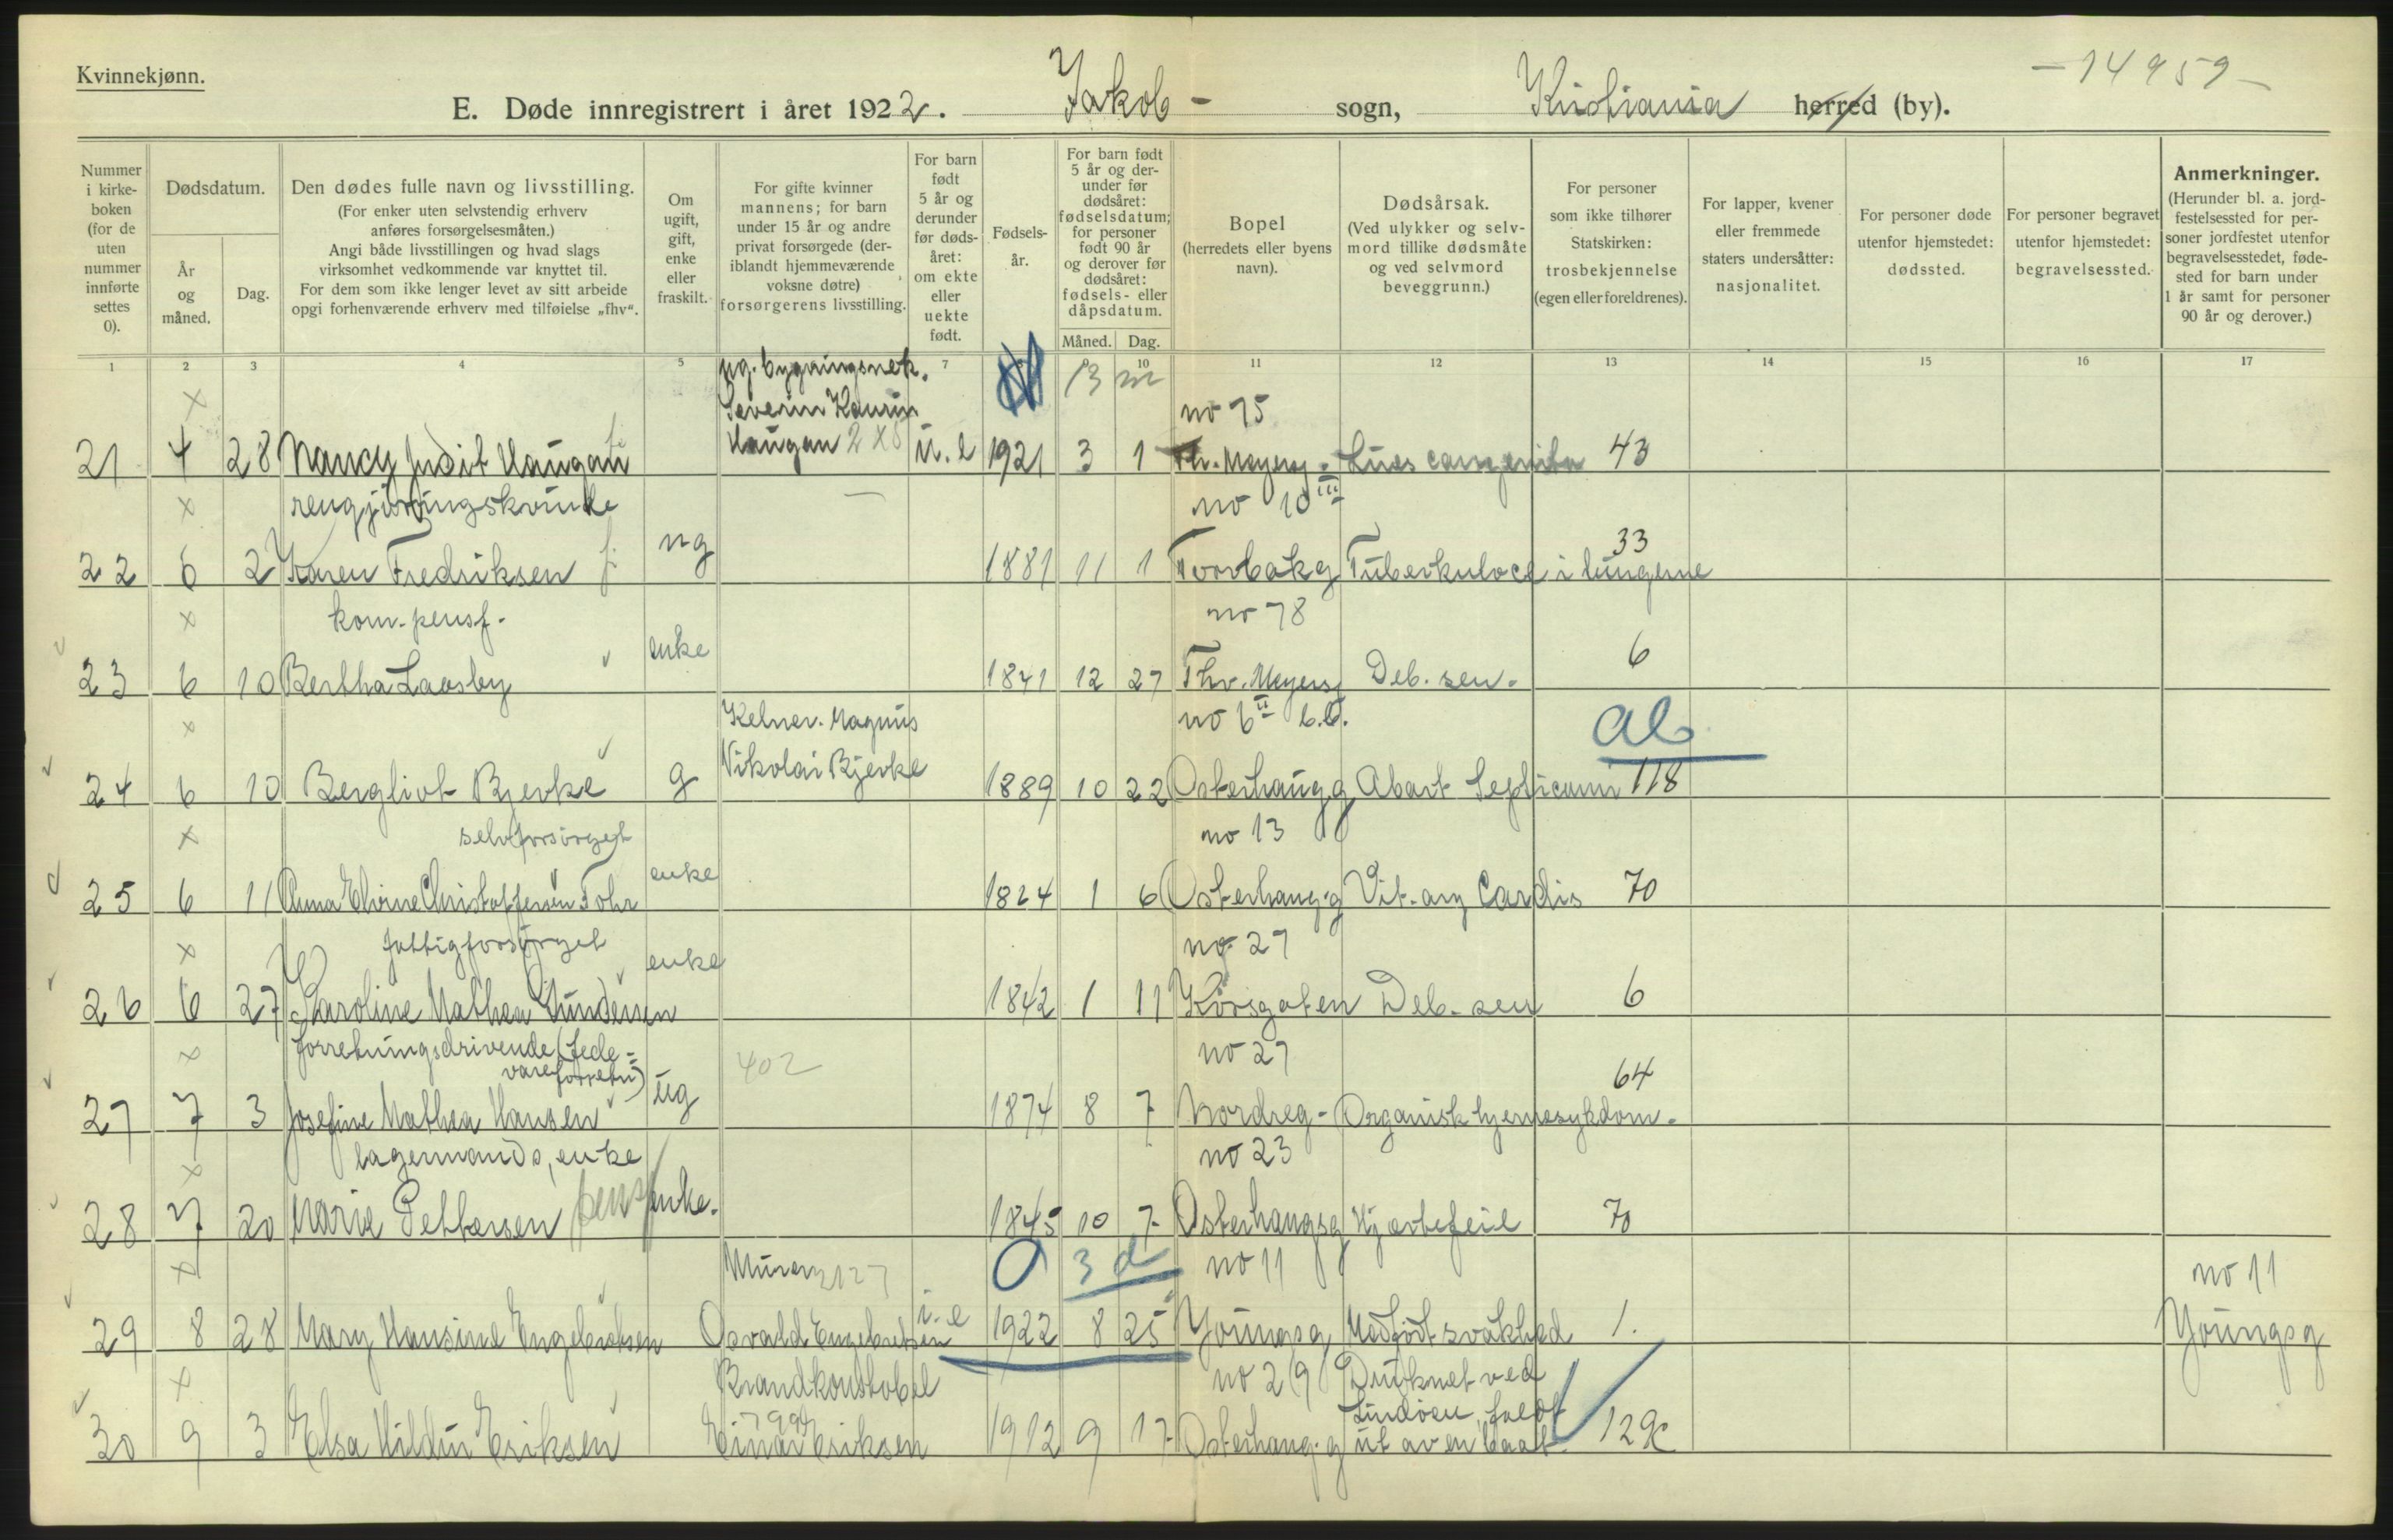 Kvinnekjønn.
- 14959 -
E. Døde innregistrert i året 1922. Jakob - sogn, Kristiania herred (by).
Nummer i kirkeboken (for de uten nummer innførte settes 0).
Dødsdatum.
År og måned.
Dag.
Den dødes fulle navn og livsstilling.
(For enker uten selvstendig erhverv anføres forsørgelsesmåten.)
Angi både livsstillingen og hvad slags virksomhet vedkommende var knyttet til.
For dem som ikke lenger levet av sitt arbeide opgi forhenværende erhverv med tilføielse „fhv“.
Om ugift, gift, enke eller fraskilt.
For gifte kvinner mannens; for barn under 15 år og andre privat forsørgede (deriblandt hjemmeværende voksne døtre) forsørgerens livsstilling.
For barn født 5 år og derunder før dødsåret: om ekte eller uekte født.
Fødselsår.
For barn født 5 år og derunder før dødsåret: fødselsdatum; for personer født 90 år og derover før dødsåret: fødsels- eller dåpsdatum.
Måned. Dag.
Bopel
(herredets eller byens navn).
Dødsårsak.
(Ved ulykker og selvmord tillike dødsmåte og ved selvmord beveggrunn.)
For personer som ikke tilhører Statskirken: trosbekjennelse (egen eller foreldrenes).
For lapper, kvener eller fremmede staters undersåtter: nasjonalitet.
For personer døde utenfor hjemstedet: dødssted.
For personer begravet utenfor hjemstedet: begravelsessted.
Anmerkninger.
(Herunder bl. a. jordfestelsessted for personer jordfestet utenfor begravelsesstedet, fødested for barn under 1 år samt for personer 90 år og derover.)
1 2 3 4 5 7 10 11 12 13 14 15 16 17
ug. bygningssnek. 13 m
× Severin Kaurin no 75
21 4 28 Nancy Judit Haugan Haugan 2 X 8 u. e 1921 3 1 Th. Meyersg. Lues congenita 43
× rengjøringskvinde — no 10 III
22 6 2 Karen Fredriksen f. ug 1881 11 1 Torvbakg Tuberkulose i lungerne 33
× kom. pensj. no 78
23 6 10 Bertha Laasby enke 1841 12 27 Thv. Meyersg Deb. sen. 6
× Kelner. Magnus no 6 II b.b. ab
24 6 10 Bergliot Bjerke g Nikolai Bjerke 1889 10 22 Osterhausg Abort Septicæmi 118
× selvforsørget no 13
25 6 11 Anna Elvine Christoffersen Fohr enke 1824 1 6 Osterhausg Vit. org Cordis 70
× fattigforsørget no 27
26 6 27 Karoline Mathea Gundersen enke 1842 1 11 Korsgaten Deb. sen 6
× forretningsdrivende (fedevareforretn) 402 no 27
27 7 3 Josefine Mathea Hansen ug 1874 8 7 Nordreg - Organisk hjernesykdom. 64
× lagermands, enke no 23
28 7 20 Marie Pettersen pensj enke. 1845 10 7 Osterhausg Hjertefeil 70
× Murer 2127 0 3 d no 11 no 11
29 8 28 Mary Hansine Engebretsen Osvald Engebretsen i. e 1922 8 25 Youngsg Medfødt svakhed 1. Youngsg
× Brandkonstabel no 2/9 Druknet ved
799 Lindøen, faldt
30 9 3 Elsa Hildur Eriksen Einar Eriksen 1912 9 17 Osterhausg ut av en baat. 129c